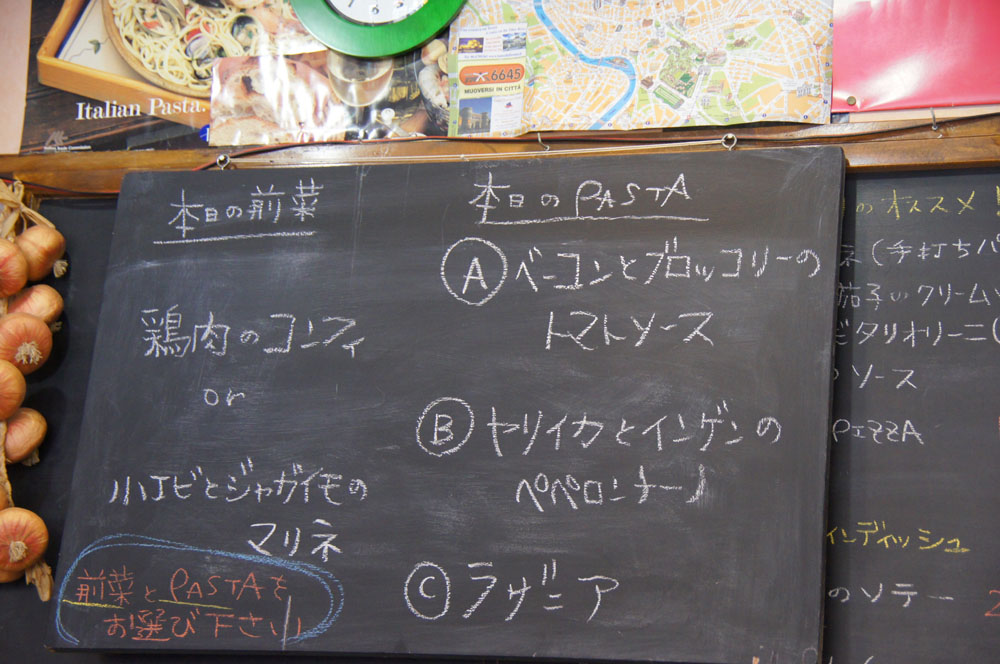 Italian Pasta.
6645
MUOVERSI IN CITTÀ
本日の前菜
鶏肉のコンフィ
or
小エビとジャガイモの
マリネ
前菜とPASTAを
お選び下さい
本日のPASTA
Ⓐ ベーコンとブロッコリーの
トマトソース
Ⓑ ヤリイカとインゲンの
ペペロンチーノ
Ⓒ ラザニア
のオススメ！
ネ(手打ちパ
茄子のクリーム
タリオリーニ(
ソース
PIZZA
インディッシュ
のソテー 2